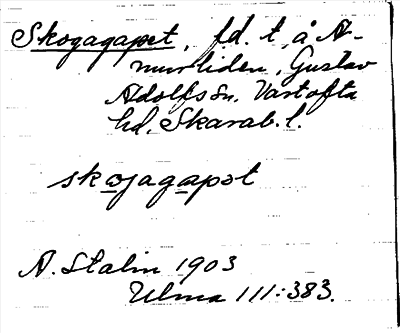 Skogagapet, f.d. t. å A-
murliden, Gustav
Adolfs sn. Vartofta
hd. Skarab. l.
skojagapət
A. Stalin 1903
Ulma 111:383.